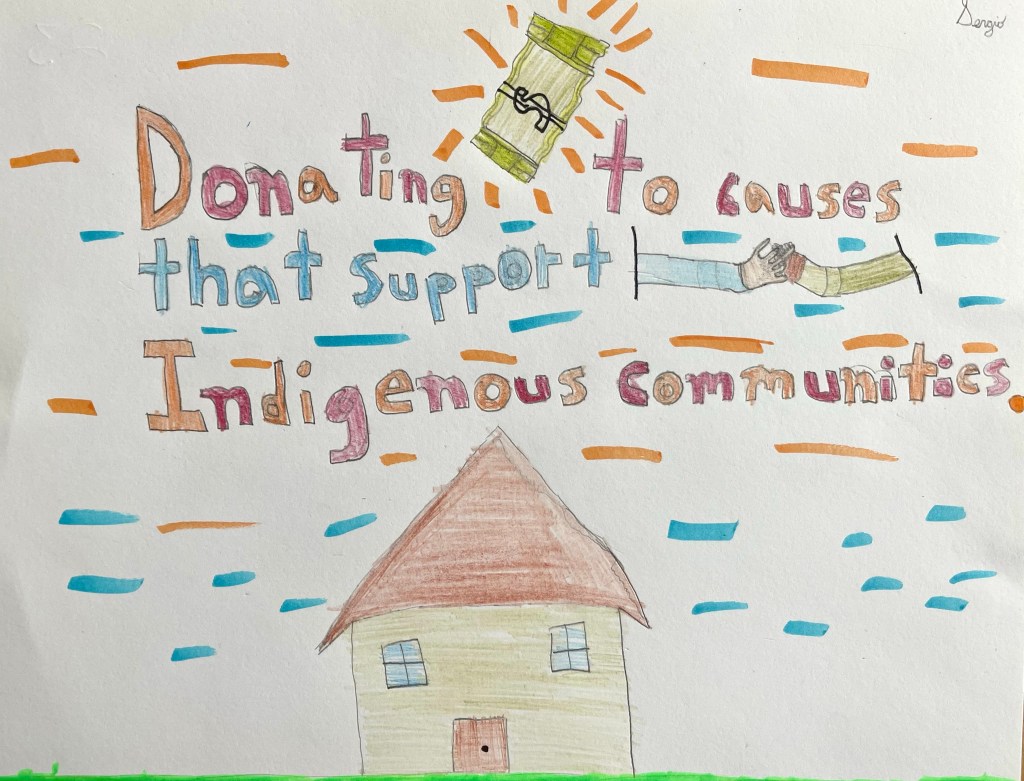 Sergio
$
Donating to causes
that support
Indigenous communities.